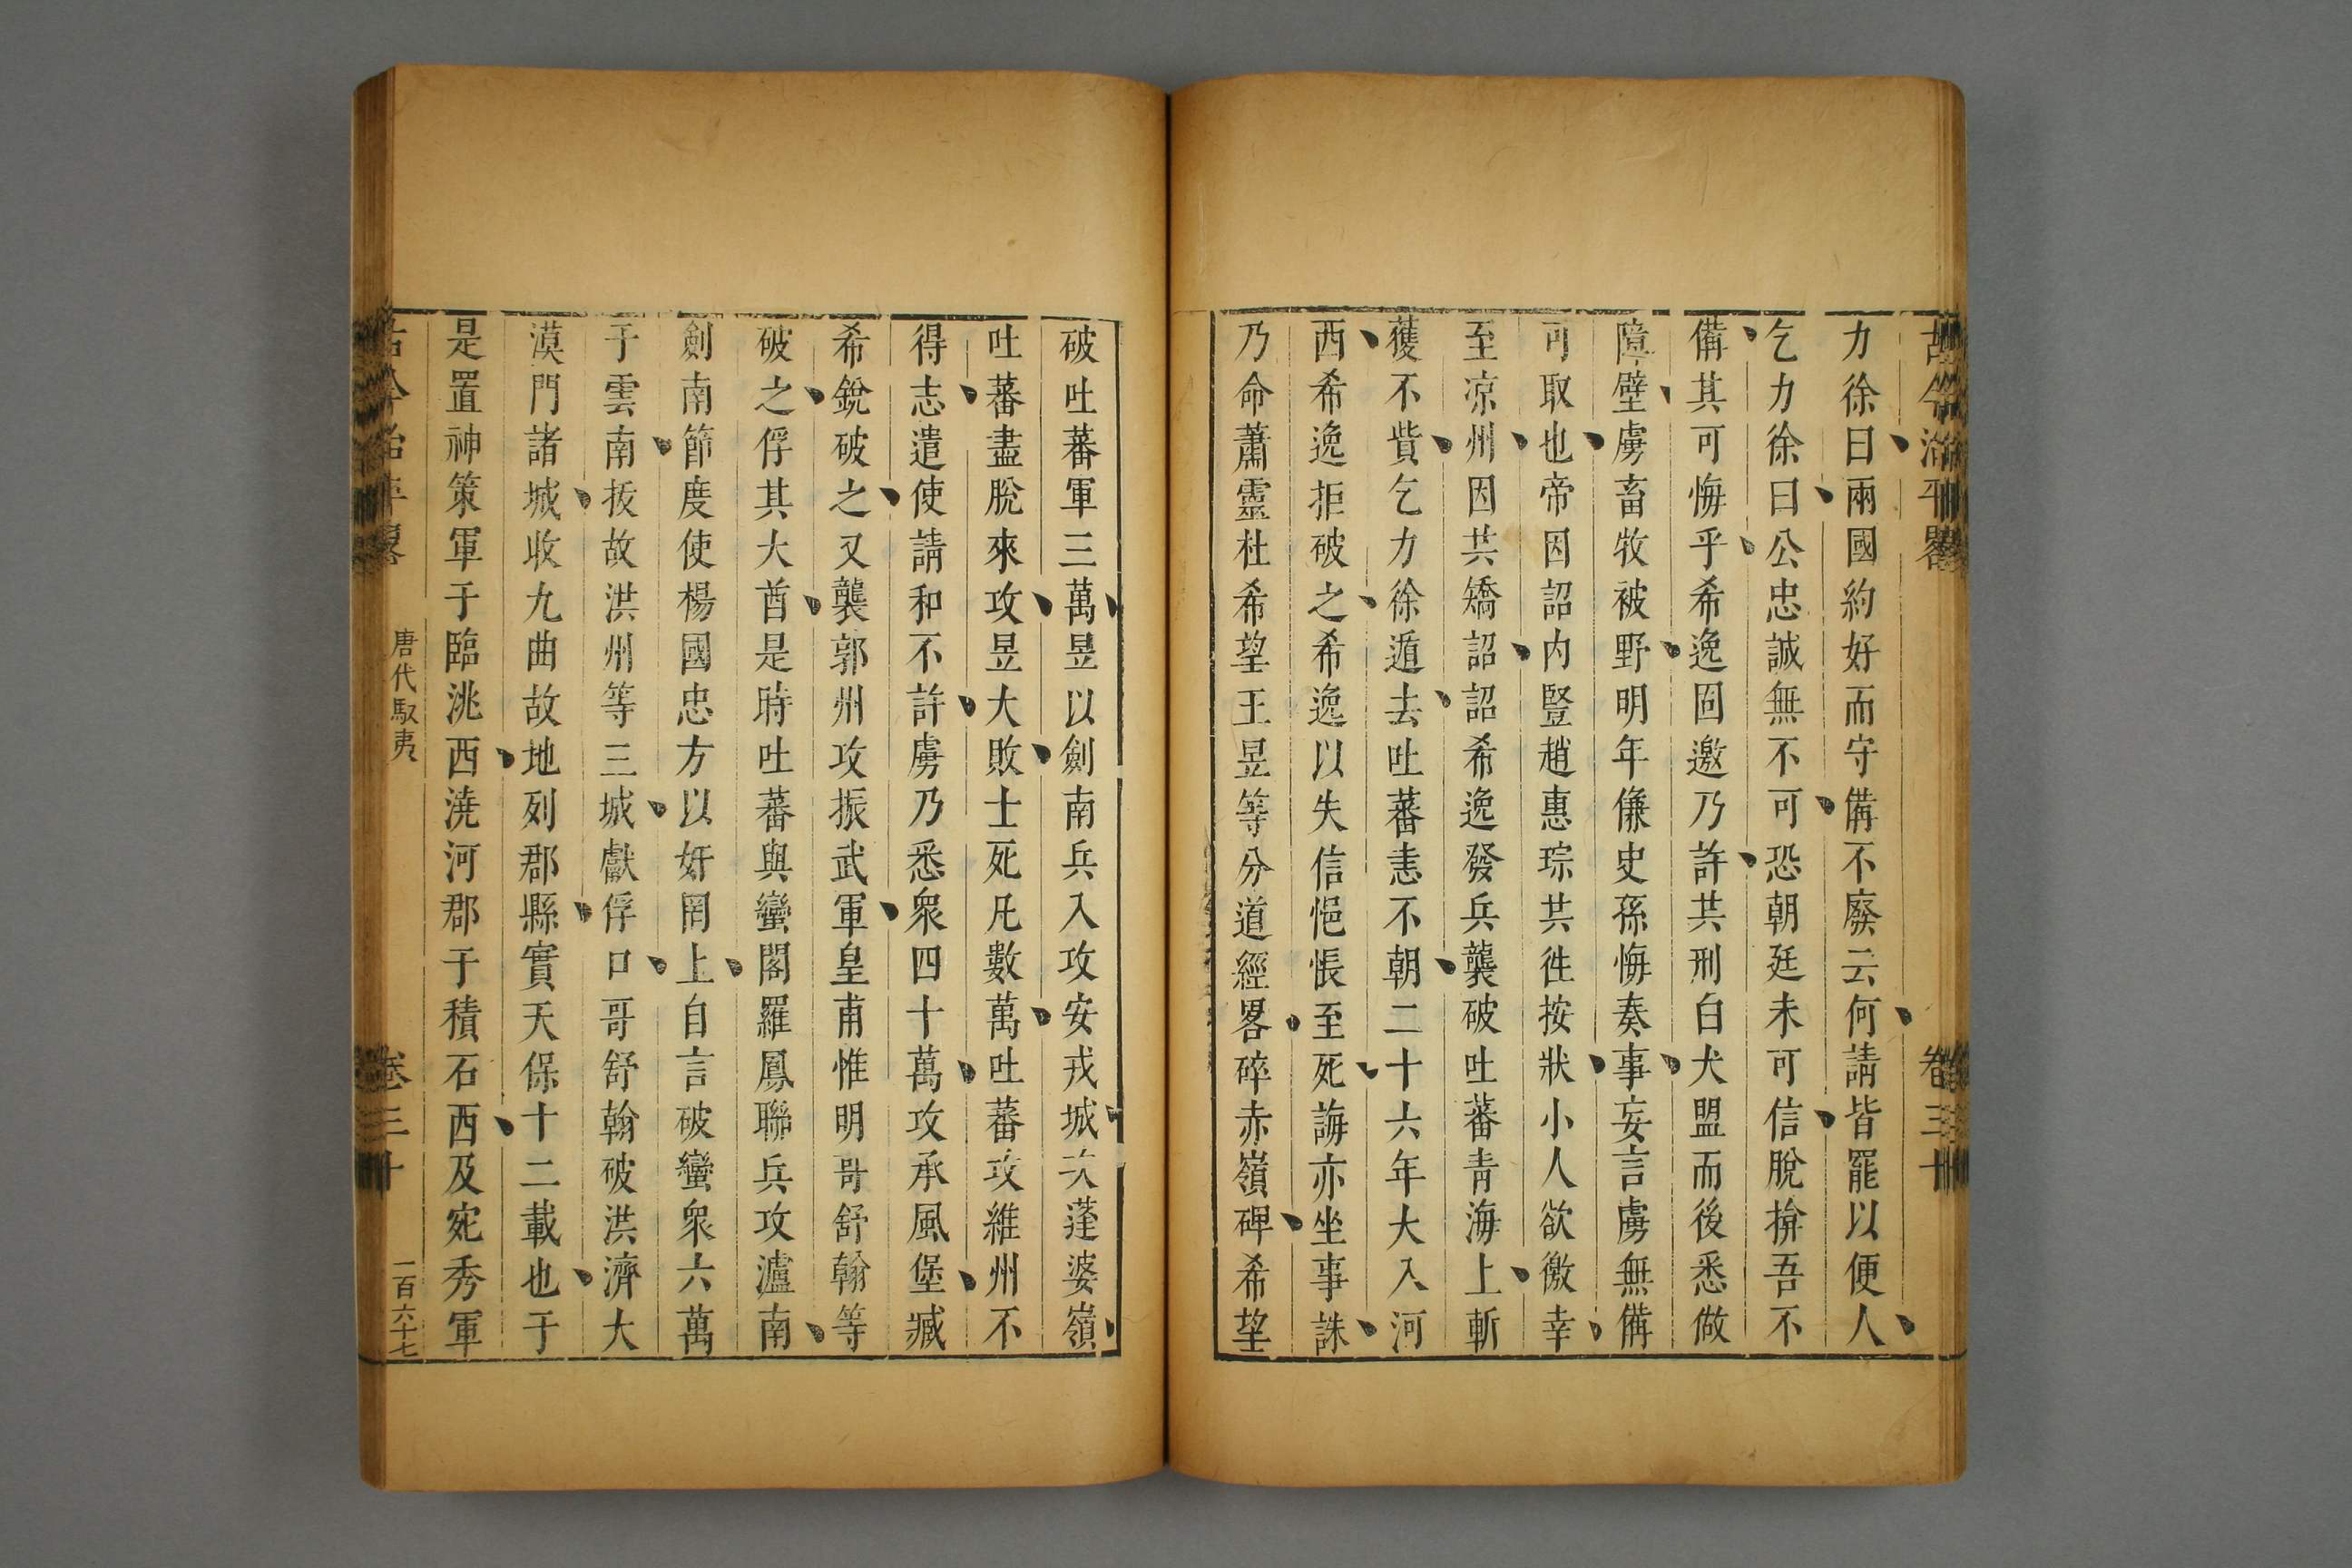 古今治平畧 卷三十
力徐曰兩國約好而守備不廢云何請皆罷以便人
乞力徐曰公忠誠無不可恐朝廷未可信脫揜吾不
備其可悔乎希逸固邀乃許共刑白犬盟而後悉㣲
障壁虜畜牧被野明年傔史孫悔奏事妄言虜無備
可取也帝因詔内豎趙惠琮共徃按狀小人欲徼幸
至凉州因共矯詔詔希逸發兵襲破吐蕃青海上斬
獲不貲乞力徐遁去吐蕃恚不朝二十六年大入河
西希逸拒破之希逸以失信悒悵至死誨亦坐事誅
乃命蕭靈杜希望王昱等分道經畧碎赤嶺碑希望
破吐蕃軍三萬昱以劍南兵入攻安戎城次蓬婆嶺
吐蕃盡脫來攻昱大敗士死凡數萬吐蕃攻維州不
得志遣使請和不許虜乃悉衆四十萬攻承風堡臧
希銳破之又襲郭州攻振武軍皇甫惟明哥舒翰等
破之俘其大酋是時吐蕃與蠻閣羅鳳聯兵攻瀘南
劍南節度使楊國忠方以奸罔上自言破蠻衆六萬
于雲南拔故洪州等三城獻俘口哥舒翰破洪濟大
漠門諸城收九曲故地列郡縣實天保十二載也于
是置神策軍于臨洮西澆河郡于積石西及宛秀軍
古今治平畧 唐代馭夷 卷三十 一百六十七